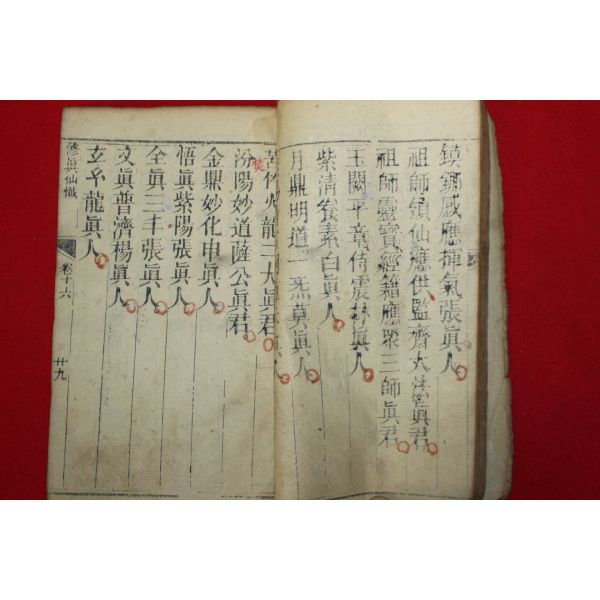 鎮鄉感應揮氣張眞人
祖師鎮仙應供監齋大使眞君
祖師靈寶經籍應眾三師眞君
玉闕平章侍震林眞人
紫清養素白眞人
月鼎明道一炁莫眞人
苦竹火龍二大眞君
汾陽妙道薩公眞君
金鼎妙化申眞人
悟眞紫陽張眞人
全眞三丰張眞人
文眞普濟楊眞人
龍眞人
修眞仙懺
卷十六
廿九